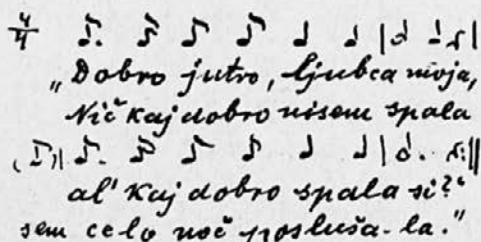 4/4
„Dobro jutro, ljubca moja,
Nič kaj dobro nisem spala
al' kaj dobro spala si?“
sem celo noč posluša-la."